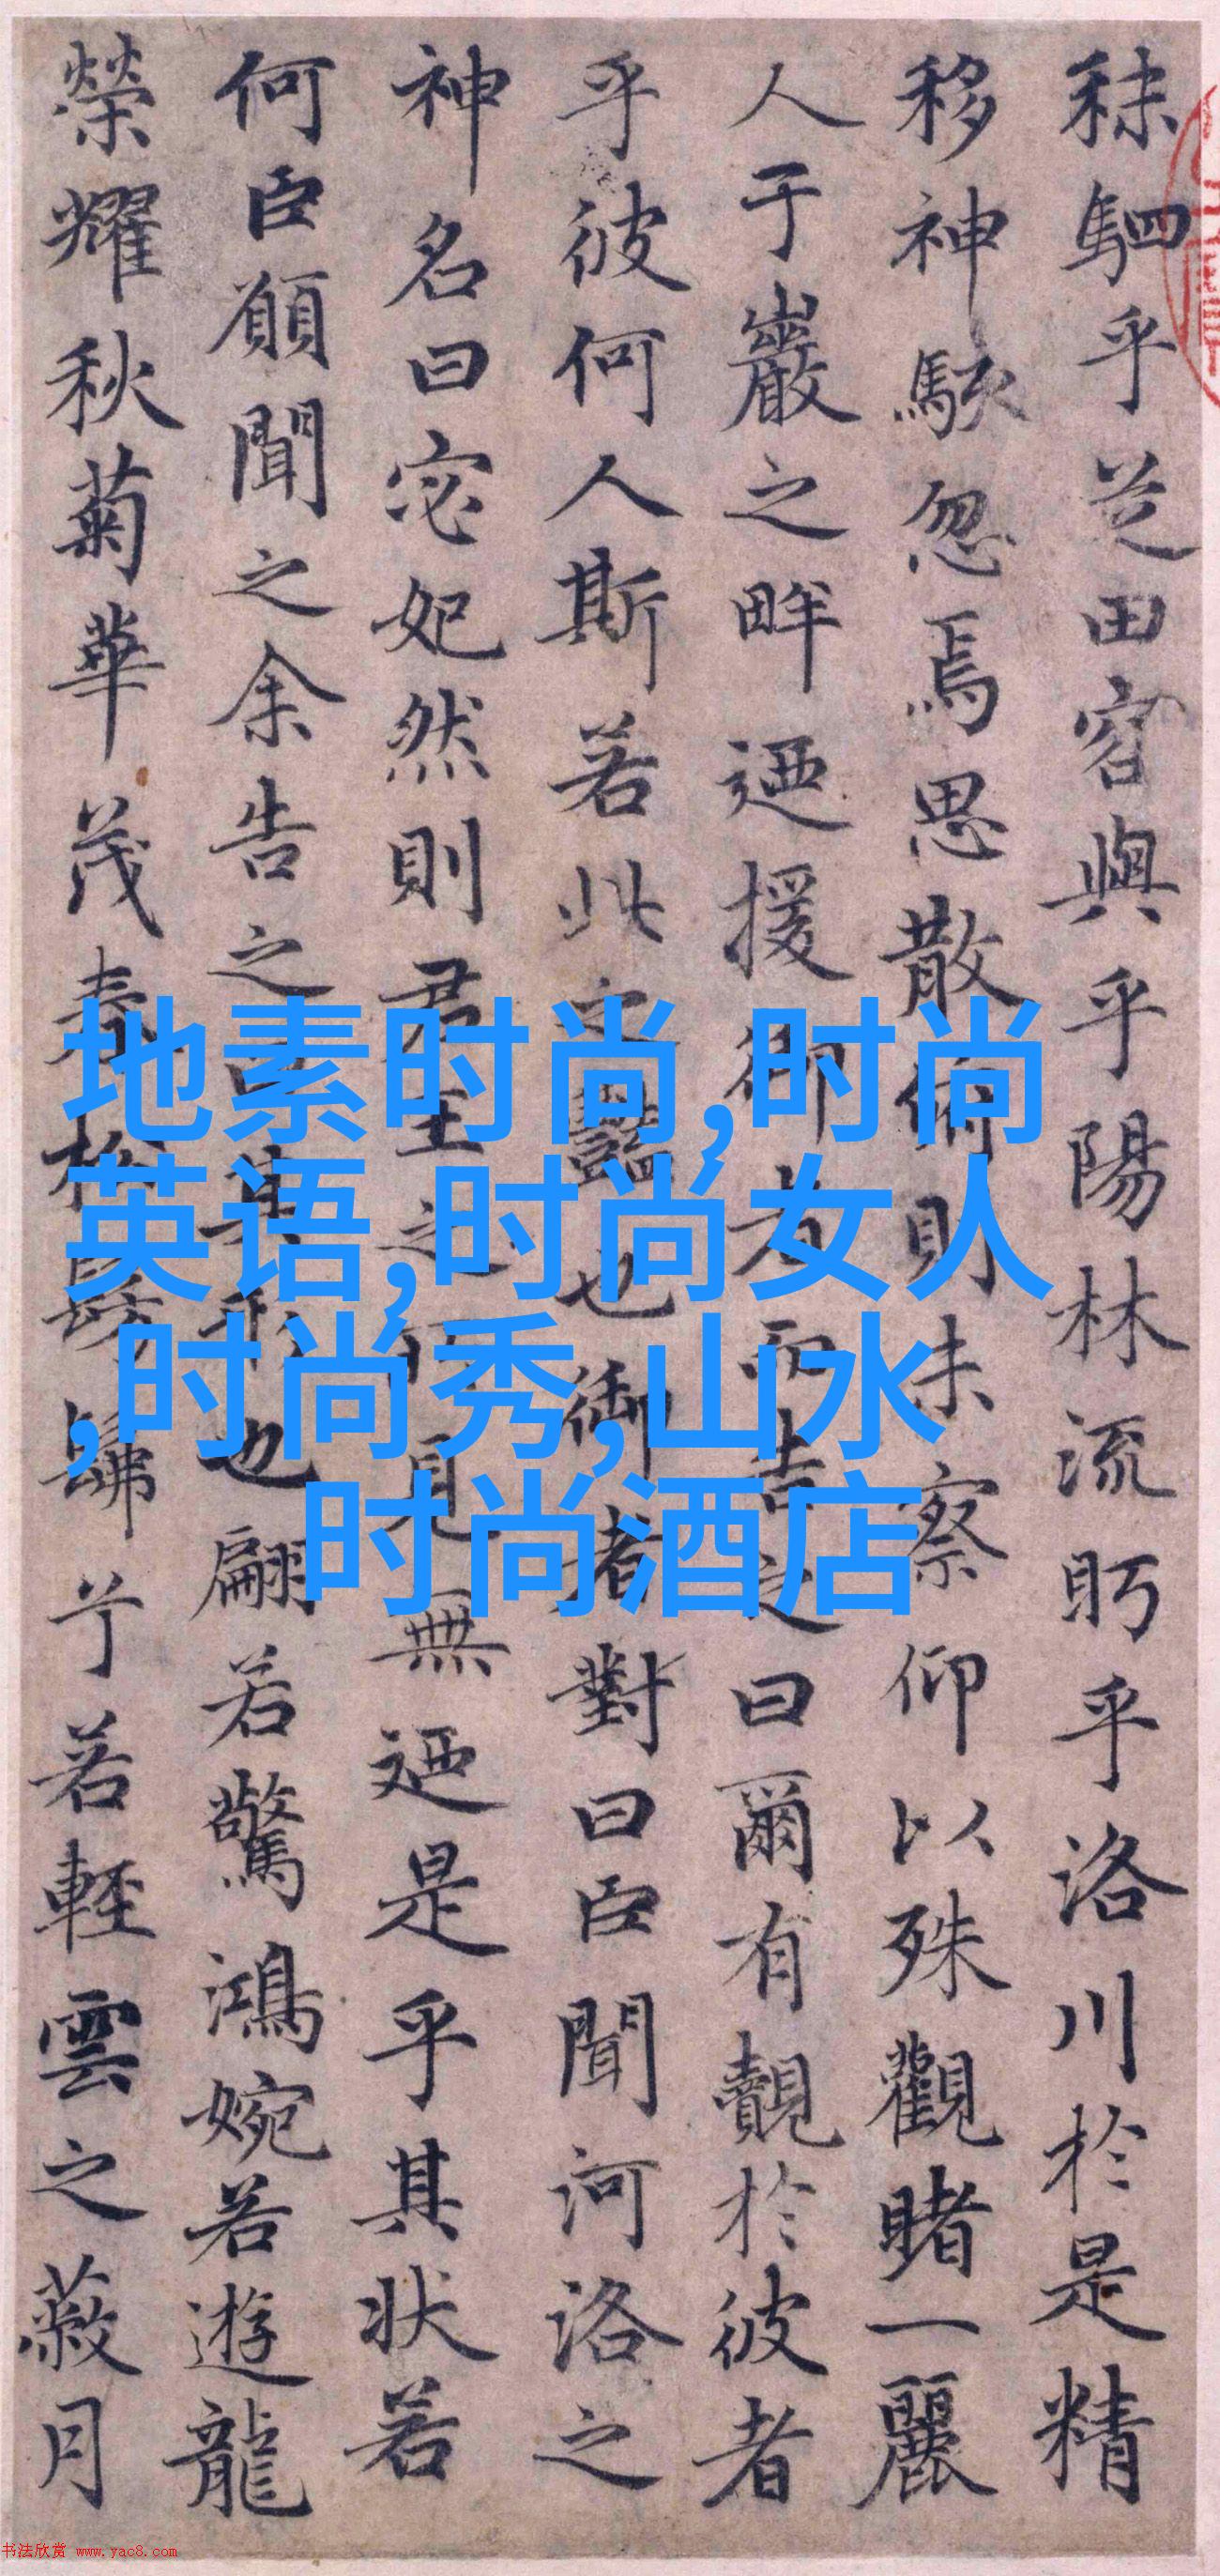 秣駟乎芝田容與乎陽林流眄乎洛川於是精
移神駭忽焉思散俯則未察仰以殊觀睹一麗
人于巖之畔迺援御者而告之曰爾有覿於彼者
乎彼何人斯若此之豔也御者對曰臣聞河洛之
神名曰宓妃然則君王之所見無迺是乎其状若
何臣願聞之余告之曰其形也翩若驚鴻婉若遊龍
榮耀秋菊華茂春松髣髴兮若輕雲之蔽月
地素时尚,时尚
英语,时尚女人
,时尚秀,山水
时尚酒店
书法欣赏 www.yac8.com